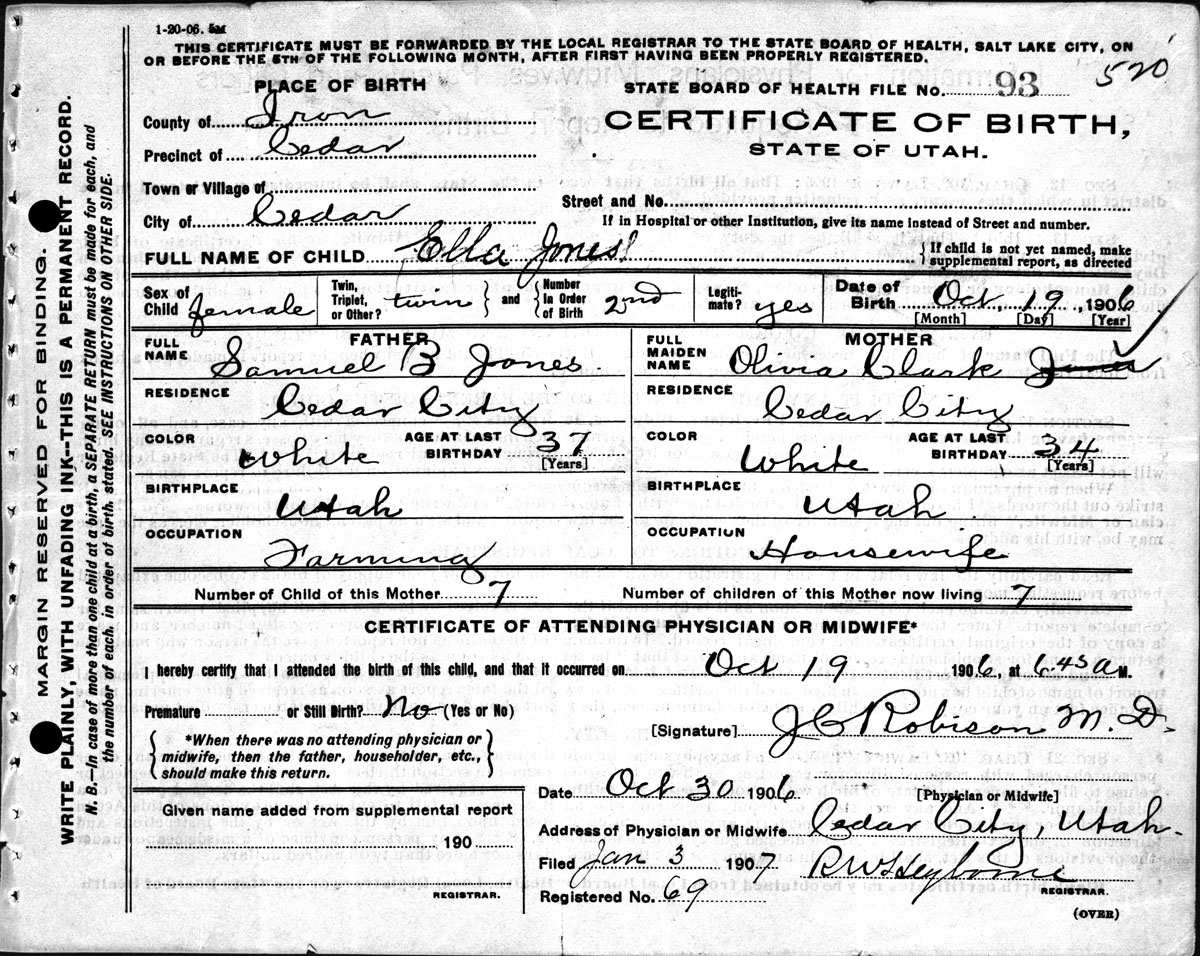 1-20-06. 5M
THIS CERTIFICATE MUST BE FORWARDED BY THE LOCAL REGISTRAR TO THE STATE BOARD OF HEALTH, SALT LAKE CITY, ON
OR BEFORE THE 5TH OF THE FOLLOWING MONTH, AFTER FIRST HAVING BEEN PROPERLY REGISTERED.
520
PLACE OF BIRTH
STATE BOARD OF HEALTH FILE No. 93
County of Iron
CERTIFICATE OF BIRTH,
Precinct of Cedar
STATE OF UTAH.
Town or Village of
Street and No.
City of Cedar
If in Hospital or other Institution, give its name instead of Street and number.
FULL NAME OF CHILD Ella Jones
{ If child is not yet named, make
supplemental report, as directed
Sex of Child female
Twin, Triplet, or Other? twin } and { Number In Order of Birth 2nd
Legitimate? yes
Date of Birth Oct, 19, 1906
[Month] [Day] [Year]
FATHER
FULL NAME Samuel B Jones
MOTHER
FULL MAIDEN NAME Olivia Clark Jones
RESIDENCE Cedar City
RESIDENCE Cedar City
COLOR White AGE AT LAST BIRTHDAY 37 [Years]
COLOR White AGE AT LAST BIRTHDAY 34 [Years]
BIRTHPLACE Utah
BIRTHPLACE Utah
OCCUPATION Farming
OCCUPATION Housewife
Number of Child of this Mother 7 Number of children of this Mother now living 7
CERTIFICATE OF ATTENDING PHYSICIAN OR MIDWIFE*
I hereby certify that I attended the birth of this child, and that it occurred on Oct 19 1906, at 6.45 a M.
Premature or Still Birth? No (Yes or No)
[Signature] J C Robison M. D.
{ *When there was no attending physician or
midwife, then the father, householder, etc.,
should make this return. }
Date Oct 30 1906 [Physician or Midwife]
Given name added from supplemental report
190
REGISTRAR.
Address of Physician or Midwife Cedar City, Utah.
Filed Jan 3 1907
REGISTRAR.
Registered No. 69
(OVER)
MARGIN RESERVED FOR BINDING.
WRITE PLAINLY WITH UNFADING INK—THIS IS A PERMANENT RECORD.
N. B.—In case of more than one child at a birth, a SEPARATE RETURN must be made for each, and
the number of each, in order of birth, stated. SEE INSTRUCTIONS ON OTHER SIDE.